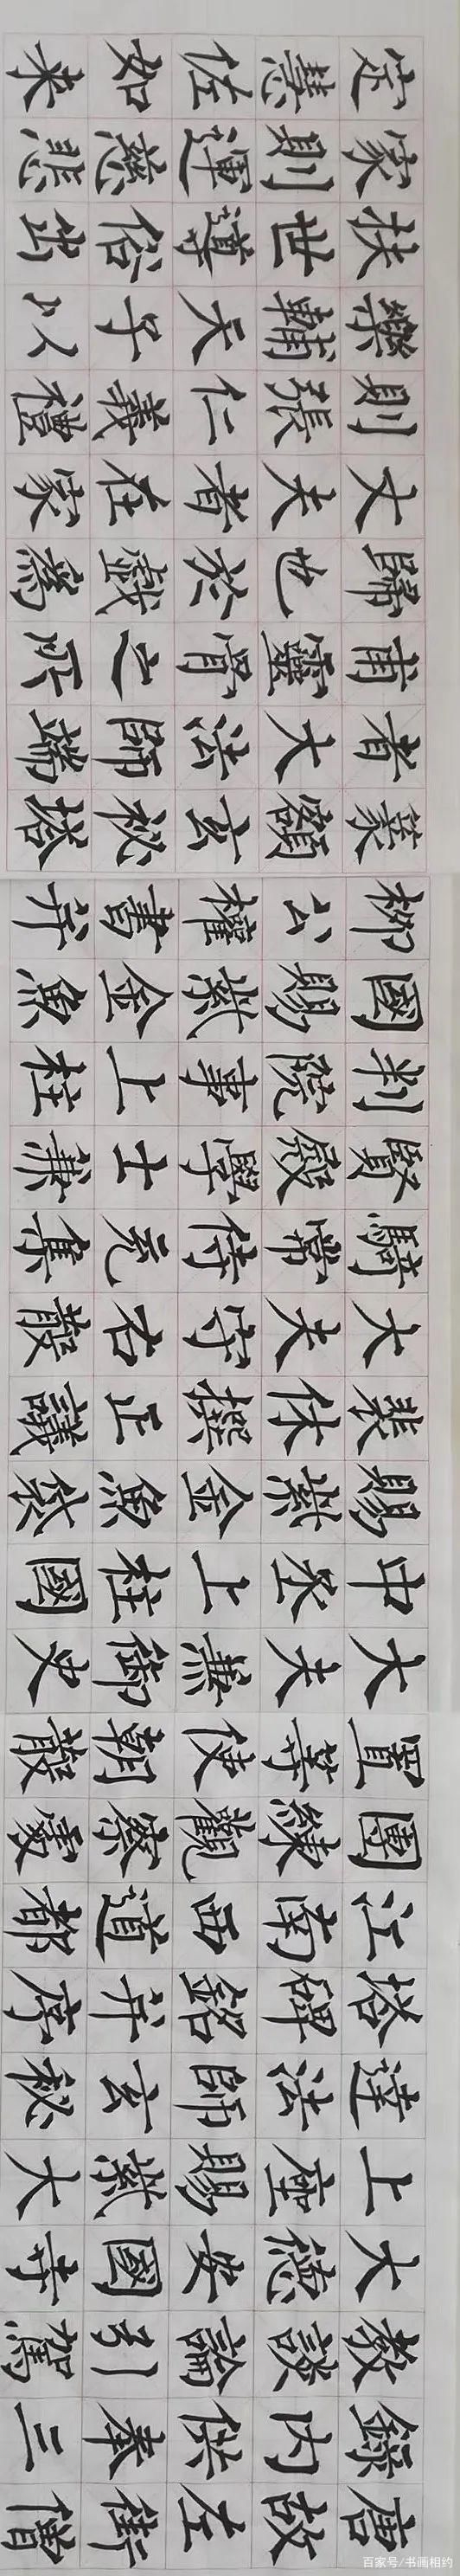 唐故左街僧
錄内供奉三
教談論引駕
大德安國寺
上座賜紫大
達法師玄秘
塔碑銘并序
江南西道都
團練觀察處
置等使朝散
大夫兼御史
中丞上柱國
賜紫金魚袋
裴休撰正議
大夫守右散
騎常侍充集
賢殿學士兼
判院事上柱
國賜紫金魚
柳公權書并
篆額玄秘塔
者大法師端
甫靈骨之所
歸也於戲爲
丈夫者在家
則張仁義禮
樂輔天子以
扶世導俗出
家則運慈悲
定慧佐如來
百家号/书画相约